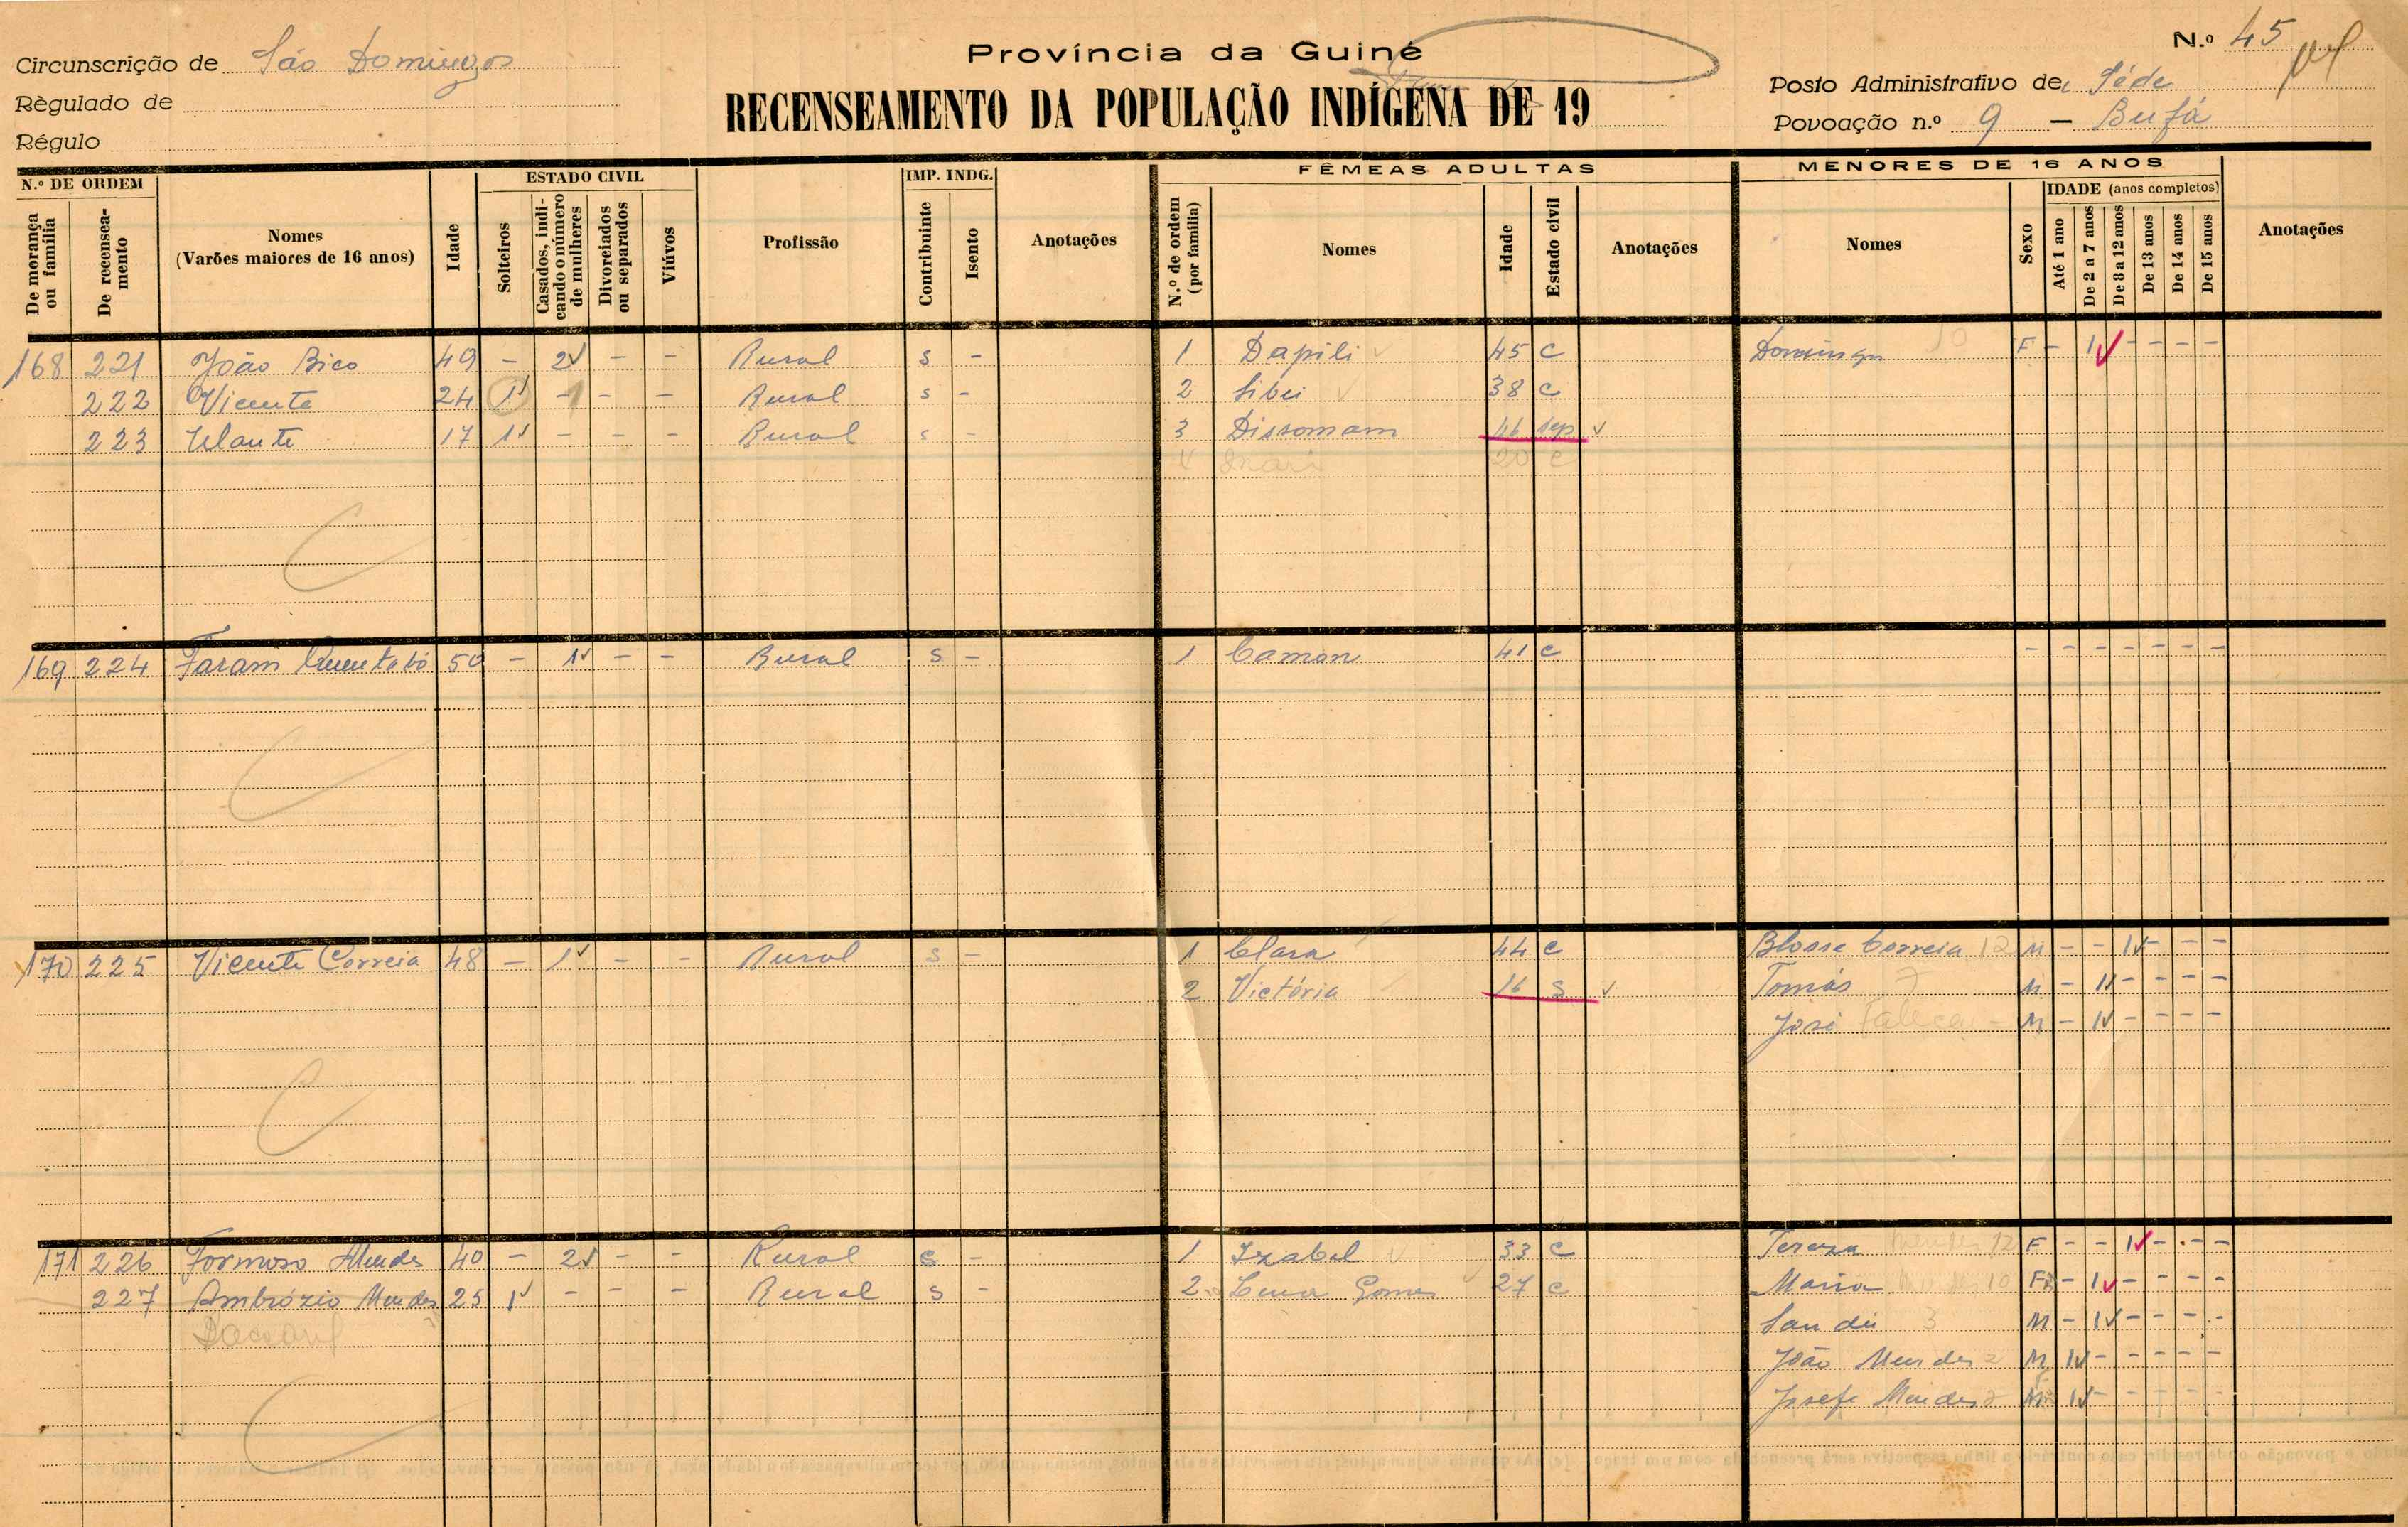 Província da Guiné
RECENSEAMENTO DA POPULAÇÃO INDÍGENA DE 19
Circunscrição de São Domingos
Règulado de
Régulo
N.º 45
Posto Administrativo de Séde
Povoação n.º 9 — Bufá
N.º DE ORDEM
De morança ou família
De recenseamento
Nomes
(Varões maiores de 16 anos)
Idade
ESTADO CIVIL
Solteiros
Casados, indicando o número de mulheres
Divorciados ou separados
Viúvos
Profissão
IMP. INDG.
Contribuinte
Isento
Anotações
FÊMEAS ADULTAS
N.º de ordem (por família)
Nomes
Idade
Estado civil
Anotações
MENORES DE 16 ANOS
Nomes
Sexo
IDADE (anos completos)
Até 1 ano
De 2 a 7 anos
De 8 a 12 anos
De 13 anos
De 14 anos
De 15 anos
Anotações
168 221 João Bico 49 - 2 - - Rural s - 1 Dapili 45 c Domingas 10 F - 1 - - - -
222 Vicente 24 1 - - - Rural s - 2 Sibei 38 c
223 Ulante 17 1 - - - Rural s - 3 Dissomam 46 sep
4 20 c
169 224 Faram 50 - 1 - - Rural s - 1 Camon 41 c - - - - - - -
170 225 Vicente Correia 48 - 1 - - Rural s - 1 Clara 44 c Blosse Correia 12 M - - 1 - - -
2 Victória 16 s Tomás 7 M - 1 - - - -
José M - 1 - - - -
171 226 Formoso Mendes 40 - 2 - - Rural c - 1 Izabel 33 c Tereza Mendes 12 F - - 1 - - -
227 Ambrózio Mendes 25 1 - - - Rural s - 2 Gomes 27 c Maria Mendes 10 F - 1 - - - -
3 M - 1 - - - -
João Mendes 2 M 1 - - - - -
Josefe Mendes 2 M 1 - - - - -